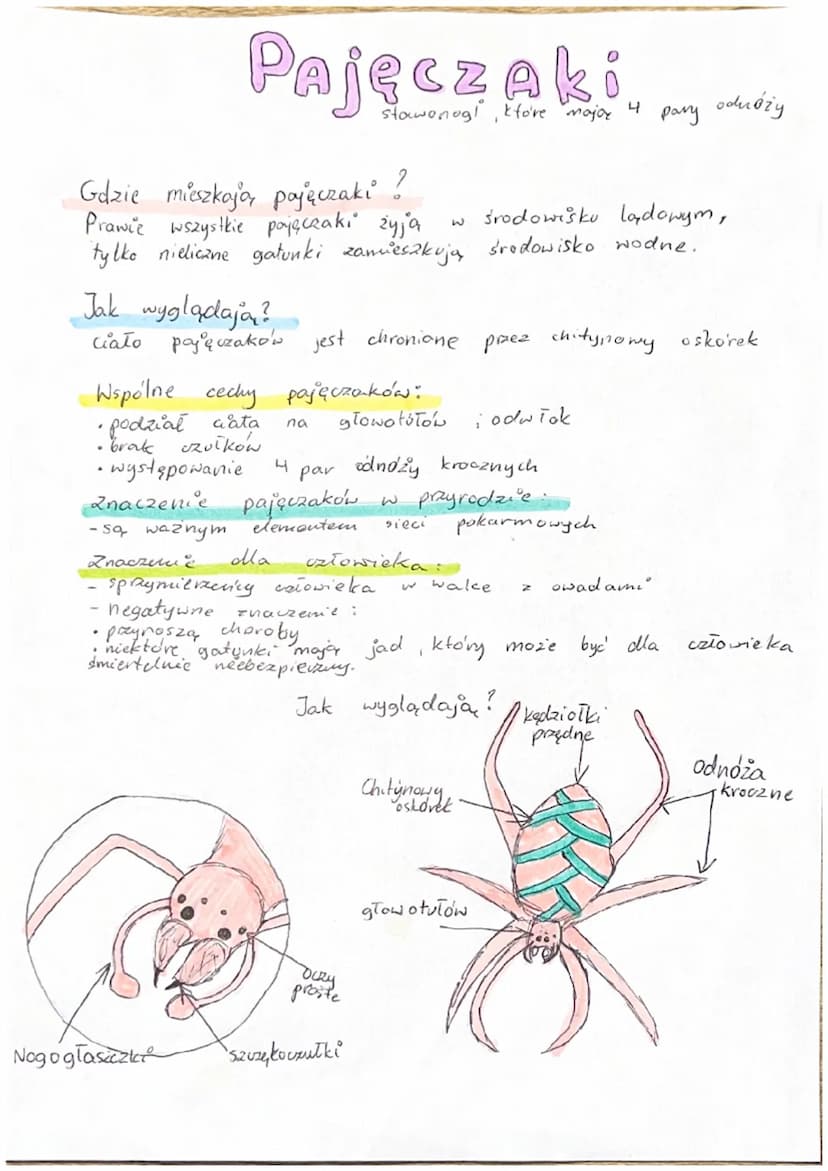 Pajęczaki
stawonogi, które mają 4 pary odnóży
Gdzie mieszkają pajęczaki?
Prawie wszystkie pajęczaki żyją w środowisku lądowym,
tylko nieliczne gatunki zamieszkują środowisko wodne.
Jak wyglądają?
ciało pajęczaków jest chronione przez chitynowy oskórek
Wspólne cechy pajęczaków:
• podział ciała na głowotułów i odwłok
• brak czułków
• występowanie 4 par odnóży krocznych
Znaczenie pajęczaków w przyrodzie:
- są ważnym elementem sieci pokarmowych
Znaczenie dla człowieka:
- sprzymierzeńcy człowieka w walce z owadami
- negatywne znaczenie:
• przynoszą choroby
• niektóre gatunki mają jad, który może być dla człowieka
śmiertelnie niebezpieczny.
Jak wyglądają?
kądziołki
przędne
Odnóża
kroczne
Chitynowy
oskórek
głowotułów
Oczy
proste
Nogogłaszczki
szczękoczułki